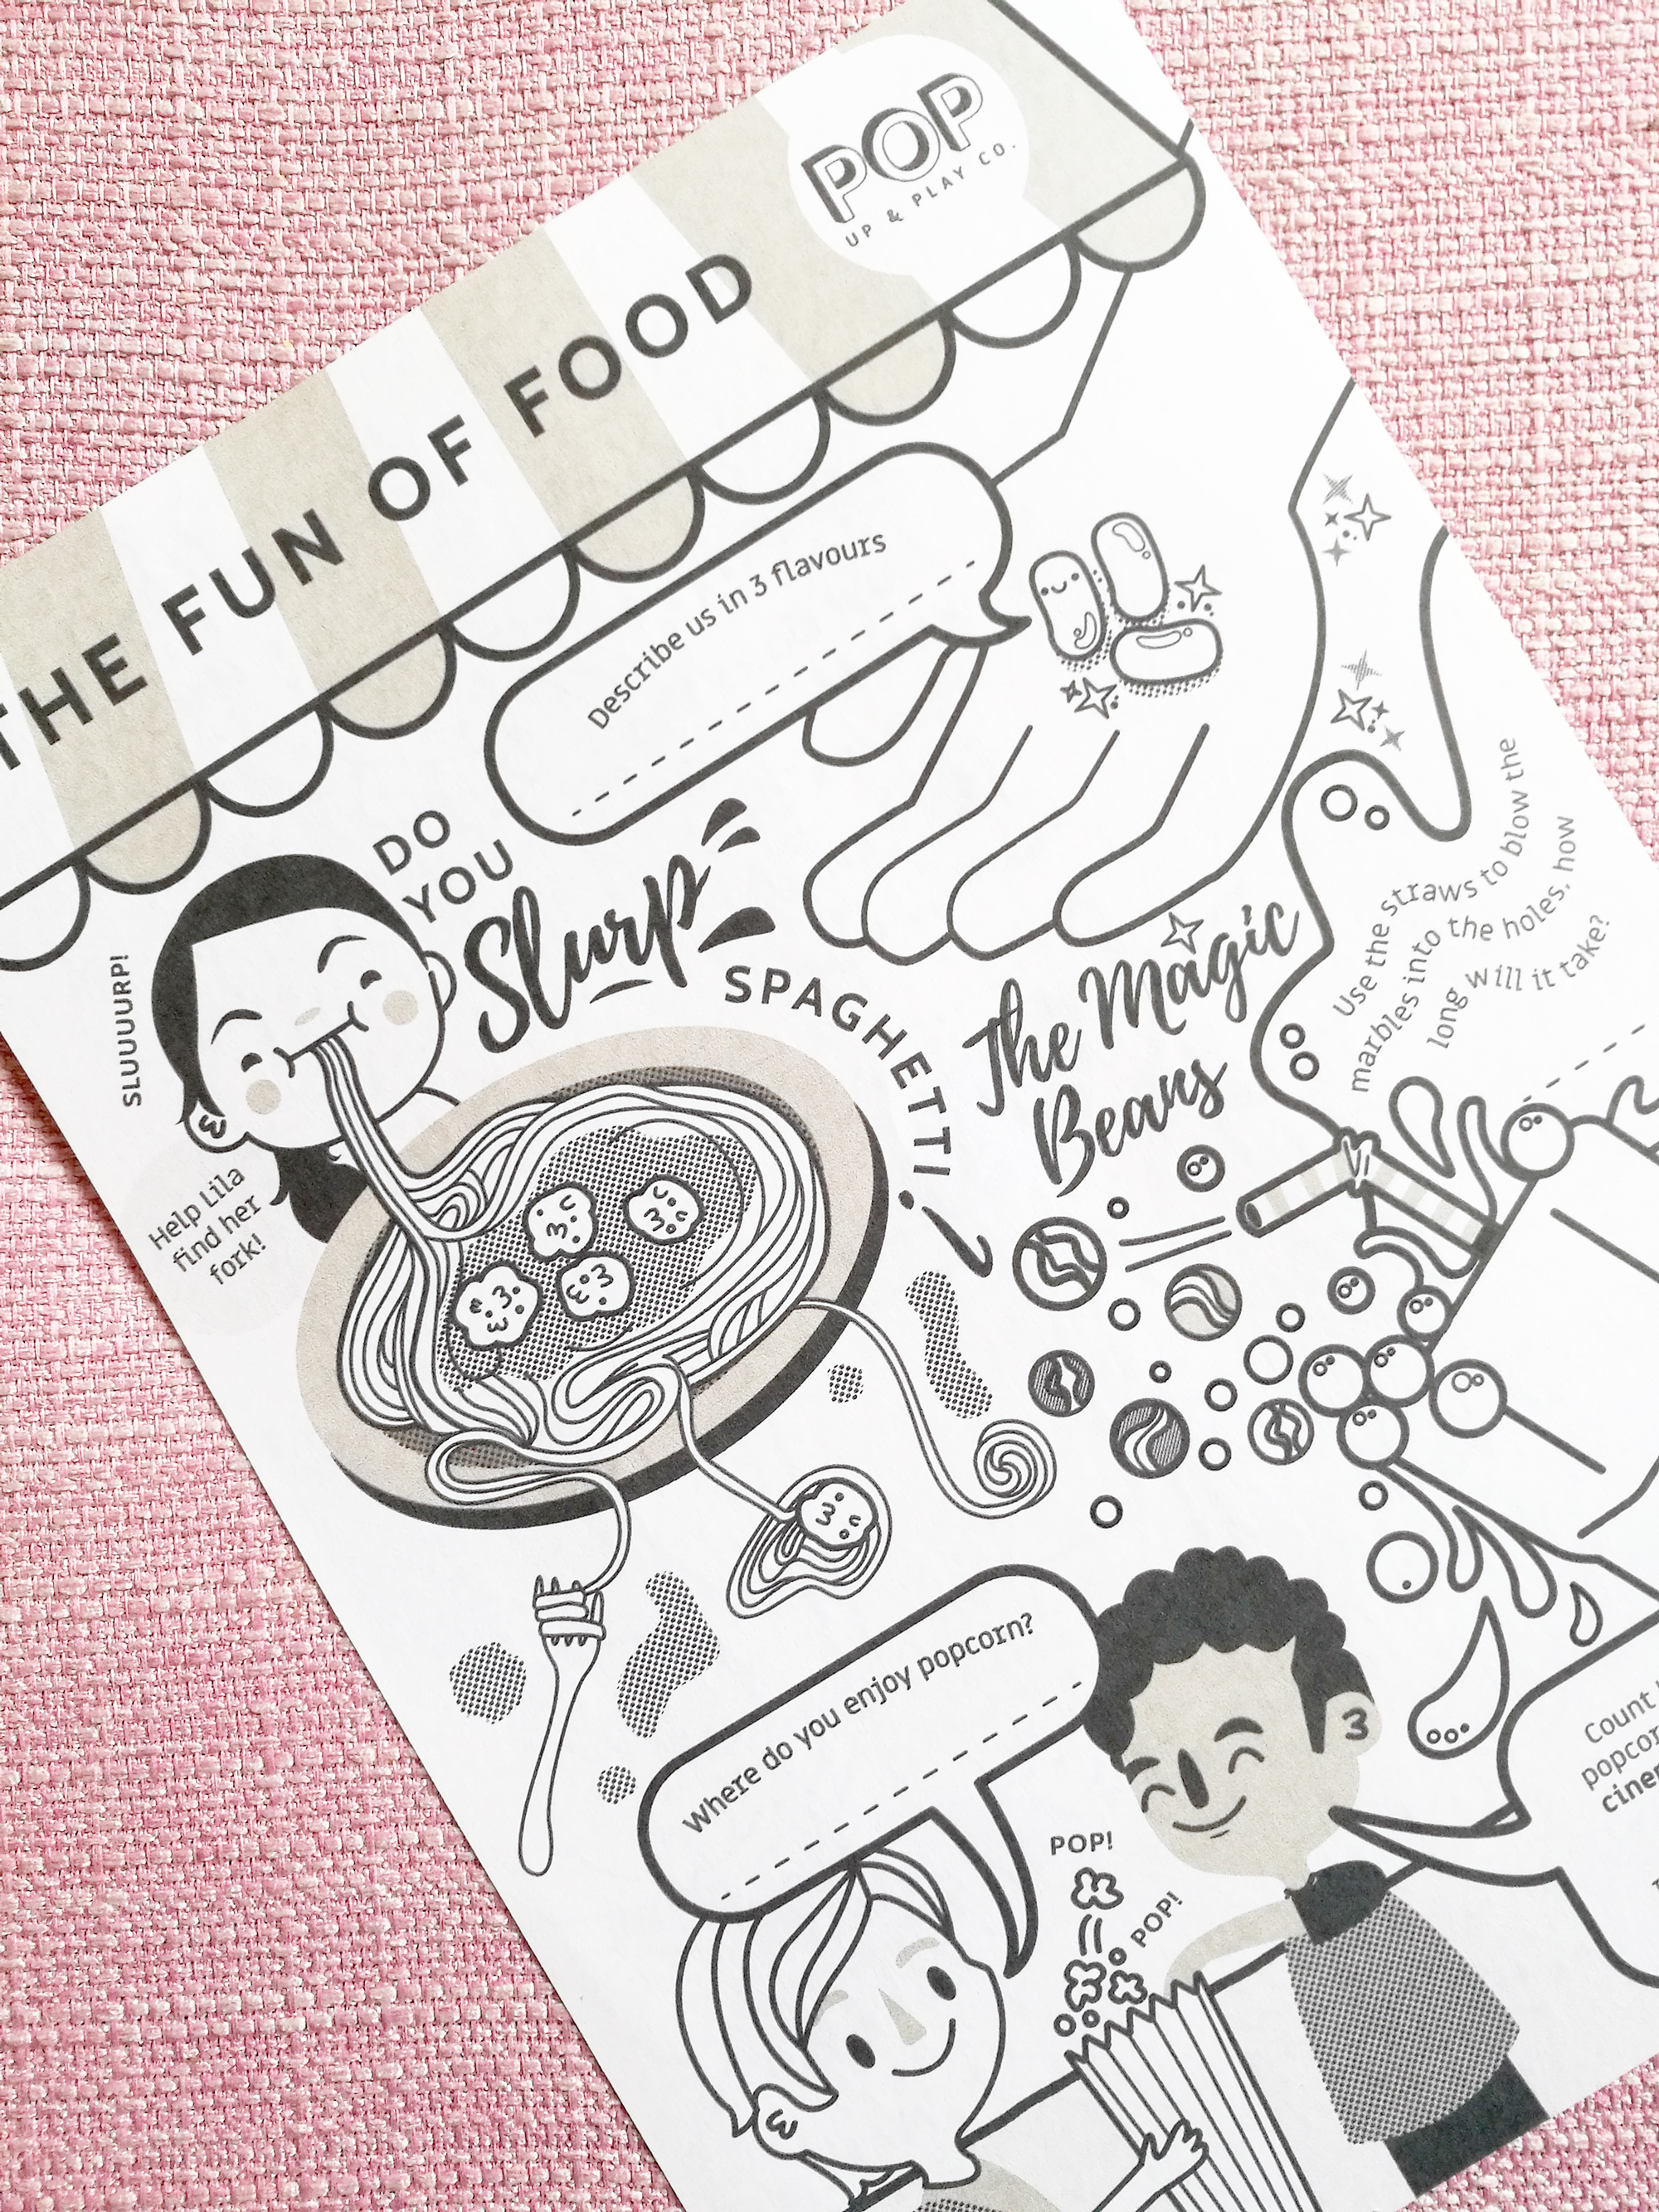 POP
UP & PLAY CO.
THE FUN OF FOOD
Describe us in 3 flavours
DO
YOU
Slurp
SPAGHETTI
SLUUUURP!
Help Lila
find her
fork!
The Magic
Beans
Use the straws to blow the
marbles into the holes, how
long will it take?
Where do you enjoy popcorn?
POP!
POP!
Count